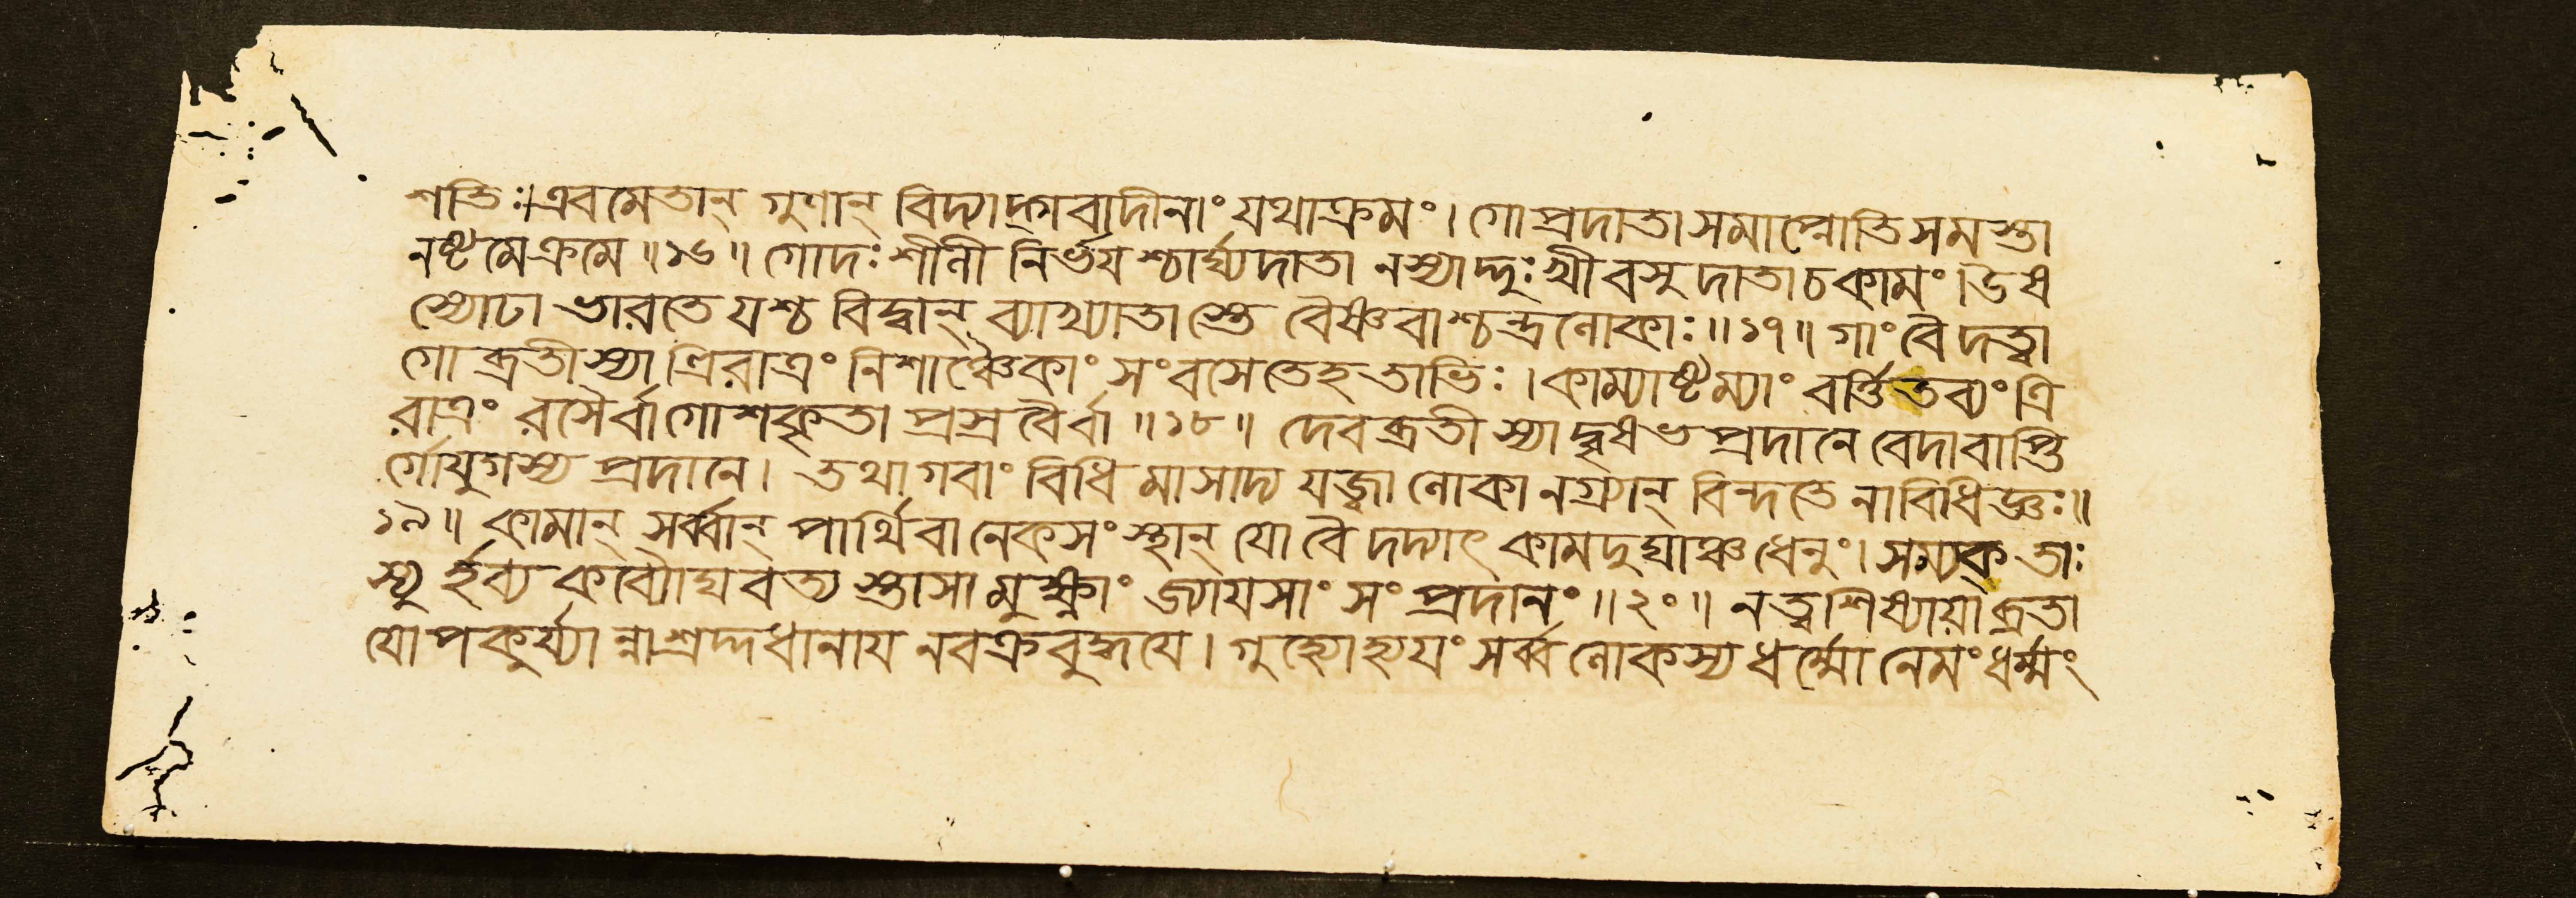 শতিঃ।এবমেতান্ গুণান্ বিদ্যাদ্গবাদীনাং যথাক্রমং। গোপ্রদাতাসমাপ্নোতিসমস্তা
নষ্টমেক্রমে॥১৬॥ গোদঃশীলী নির্ভযশ্চার্ঘ্যদাতা নস্যাদ্দুঃখীবসুদাতাচকামং।উষ
স্যোঢা ভারতে যশ্চ বিদ্বান্ ব্যাখ্যাতাস্তে বৈষ্ণবাশ্চন্দ্রলোকাঃ॥১৭॥ গাংবৈদত্ত্বা
গোব্রতীস্যাত্রিরাত্রং নিশাঞ্চৈকাং সংবসেতেহতাভিঃ।কাম্যাষ্টম্যাং বর্ত্তিতব্যং ত্রি
রাত্রং রসৈর্বাগোশকৃতা প্রস্রবৈর্বা॥১৮॥ দেবব্রতীস্যাদ্বৃষভপ্রদানে বেদাবাপ্তি
র্গোযুগস্য প্রদানে। তথাগবাং বিধিমাসাদ্য যজ্বা লোকানগ্র্যান্ বিন্দতে নাবিধিজ্ঞঃ॥
১৯॥ কামান্ সর্ব্বান্ পার্থিবানেকসংস্থান্ যো বৈ দদ্যাৎ কামদুঘাঞ্চ ধেনুং।সম্যক্ তাঃ
স্যু র্হব্যকাব্যৌঘবত্য স্তাসামুক্ষ্ণাং জ্যাযসাং সংপ্রদানং॥২০॥ নত্বশিষ্যাযাব্রতা
যোপকুর্য্যান্নাশ্রদ্দধানায নবক্রবুদ্ধযে। গুহ্যোহ্যযংসর্ব্বলোকস্যধর্ম্মো নেমংধর্ম্মং